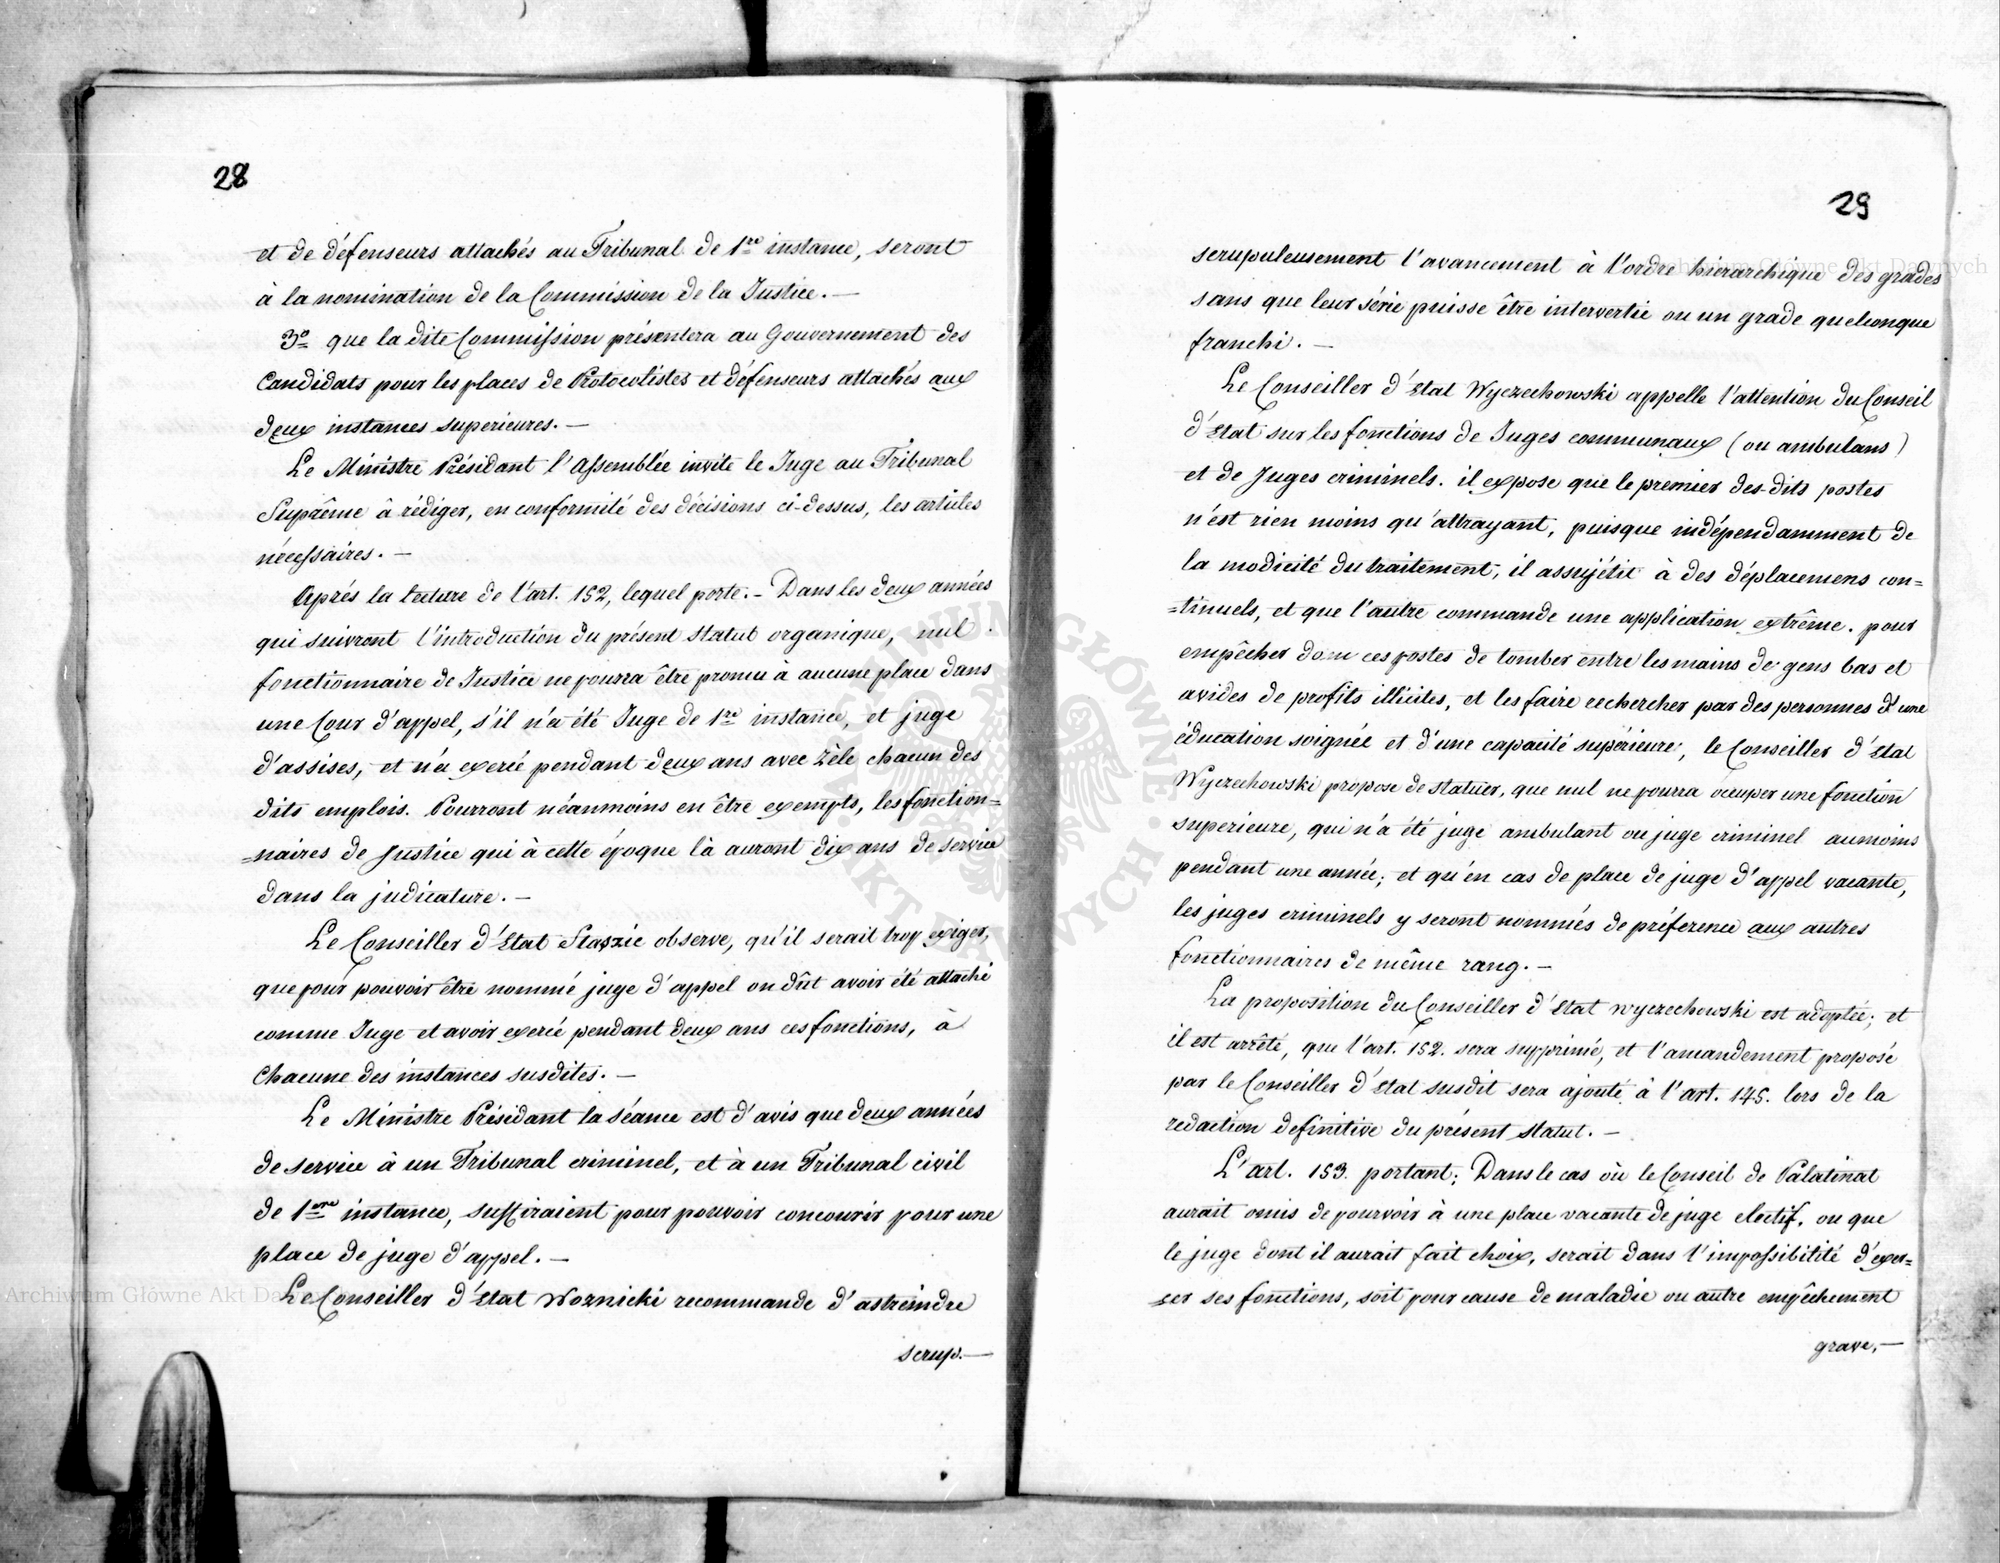 28
et de défenseurs attachés au Tribunal de 1re instance, seront
à la nomination de la Commission de la Justice. —
3o que la dite Commission présentera au Gouvernement des
Candidats pour les places de Protocolistes et défenseurs attachés aux
deux instances superieures. —
Le Ministre Présidant l'Assemblée invite le Juge au Tribunal
Suprême à rédiger, en conformité des décisions ci-dessus, les articles
nécessaires. —
Après la lecture de l'art. 152, lequel porte. – Dans les deux années
qui suivront l'introduction du présent statut organique, nul
fonctionnaire de Justice ne pourra être promu à aucune place dans
une Cour d'appel, s'il n'a été Juge de 1re instance, et juge
d'assises, et n'a exercé pendant deux ans avec zèle chacun des
dits emplois. Pourront néanmoins en être exempts, les fonction=
=naires de Justice qui à cette époque là auront dix ans de service
dans la judicature. —
Le Conseiller d'Etat Staszic observe, qu'il serait trop exiger,
que pour pouvoir être nommé juge d'appel on dût avoir été attaché
comme Juge et avoir exercé pendant deux ans ces fonctions, à
Chacune des instances susdites. —
Le Ministre Présidant la séance est d'avis que deux années
de service à un Tribunal criminel, et à un Tribunal civil
de 1ere instance, suffiraient pour pouvoir concourir pour une
place de juge d'appel. —
Le Conseiller d'Etat Woznicki recommande d'astreindre
scrup. —
29
scrupuleusement l'avancement à l'ordre hiérarchique des grades
sans que leur série puisse être intervertie ou un grade quelconque
franchi. —
Le Conseiller d'Etat Wyczechowski appelle l'attention du Conseil
d'Etat sur les fonctions de Juges communaux (ou ambulans)
et de Juges criminels. il expose que le premier des-dits postes
n'est rien moins qu'attrayant, puisque indépendamment de
la modicité du traitement, il assujétit à des déplacemens con=
=tinuels, et que l'autre commande une application extrême. pour
empêcher donc ces postes de tomber entre les mains de gens bas et
avides de profits illicites, et les faire rechercher par des personnes d'une
éducation soignée et d'une capacité supérieure, le Conseiller d'Etat
Wyczechowski propose de statuer, que nul ne pourra occuper une fonction
superieure, qui n'a été juge ambulant ou juge criminel aumoins
pendant une année; et qu'en cas de place de juge d'appel vacante,
les juges criminels y seront nommés de préference aux autres
fonctionnaires de même rang. —
La proposition du Conseiller d'Etat Wyczechowski est adoptée; et
il est arrêté, que l'art. 152. sera supprimé, et l'amandement proposé
par le Conseiller d'Etat susdit sera ajouté à l'art. 145. lors de la
redaction definitive du présent statut. —
L'art. 153. portant; Dans le cas où le Conseil de Palatinat
aurait omis de pourvoir à une place vacante de juge electif, ou que
le juge dont il aurait fait choix, serait dans l'impossibilité d'exer=
=cer ses fonctions, soit pour cause de maladie ou autre empêchement
grave, —
Archiwum Główne Akt Dawnych
ARCHIWUM GŁÓWNE AKT DAWNYCH
Archiwum Główne Akt Dawnych